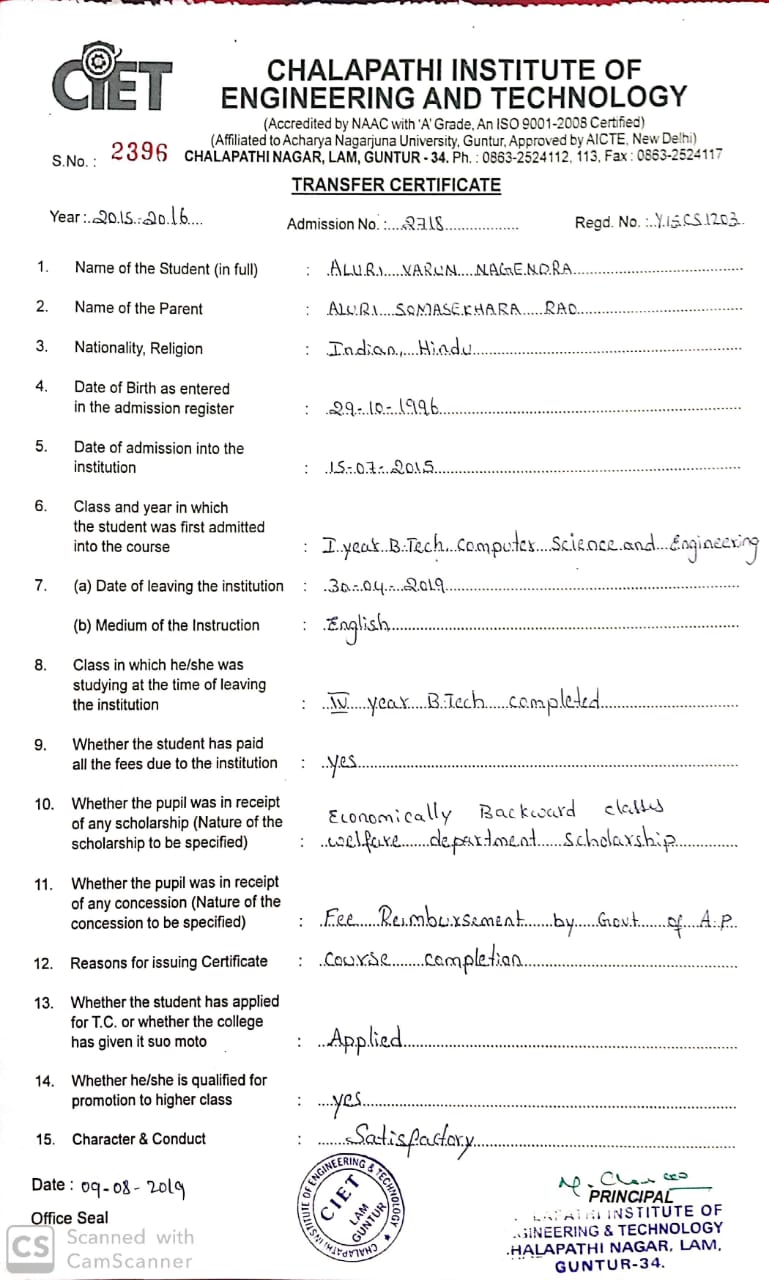 CIET
CHALAPATHI INSTITUTE OF
ENGINEERING AND TECHNOLOGY
(Accredited by NAAC with 'A' Grade, An ISO 9001-2008 Certified)
(Affiliated to Acharya Nagarjuna University, Guntur, Approved by AICTE, New Delhi)
S.No. : 2396 CHALAPATHI NAGAR, LAM, GUNTUR - 34. Ph. : 0863-2524112, 113, Fax : 0863-2524117
TRANSFER CERTIFICATE
Year : 2015-2016 Admission No. : 2718 Regd. No. : Y15CS1203
1. Name of the Student (in full) : ALURI VARUN NAGENDRA
2. Name of the Parent : ALURI SOMASEKHARA RAO
3. Nationality, Religion : Indian, Hindu
4. Date of Birth as entered
in the admission register : 29-10-1996
5. Date of admission into the
institution : 15-07-2015
6. Class and year in which
the student was first admitted
into the course : I year B.Tech, Computer Science and Engineering
7. (a) Date of leaving the institution : 30-04-2019
(b) Medium of the Instruction : English
8. Class in which he/she was
studying at the time of leaving
the institution : IV year B.Tech completed
9. Whether the student has paid
all the fees due to the institution : yes
10. Whether the pupil was in receipt
of any scholarship (Nature of the Economically Backward classes
scholarship to be specified) : welfare department scholarship
11. Whether the pupil was in receipt
of any concession (Nature of the
concession to be specified) : Fee Reimbursement by Govt of A.P.
12. Reasons for issuing Certificate : course completion
13. Whether the student has applied
for T.C. or whether the college
has given it suo moto : Applied
14. Whether he/she is qualified for
promotion to higher class : yes
15. Character & Conduct : Satisfactory
Date : 09-08-2019
Office Seal
CHALAPATHI INSTITUTE OF ENGINEERING & TECHNOLOGY
CIET
LAM
GUNTUR
PRINCIPAL
INSTITUTE OF
GINEERING & TECHNOLOGY
HALAPATHI NAGAR, LAM,
GUNTUR-34.
CS Scanned with
CamScanner